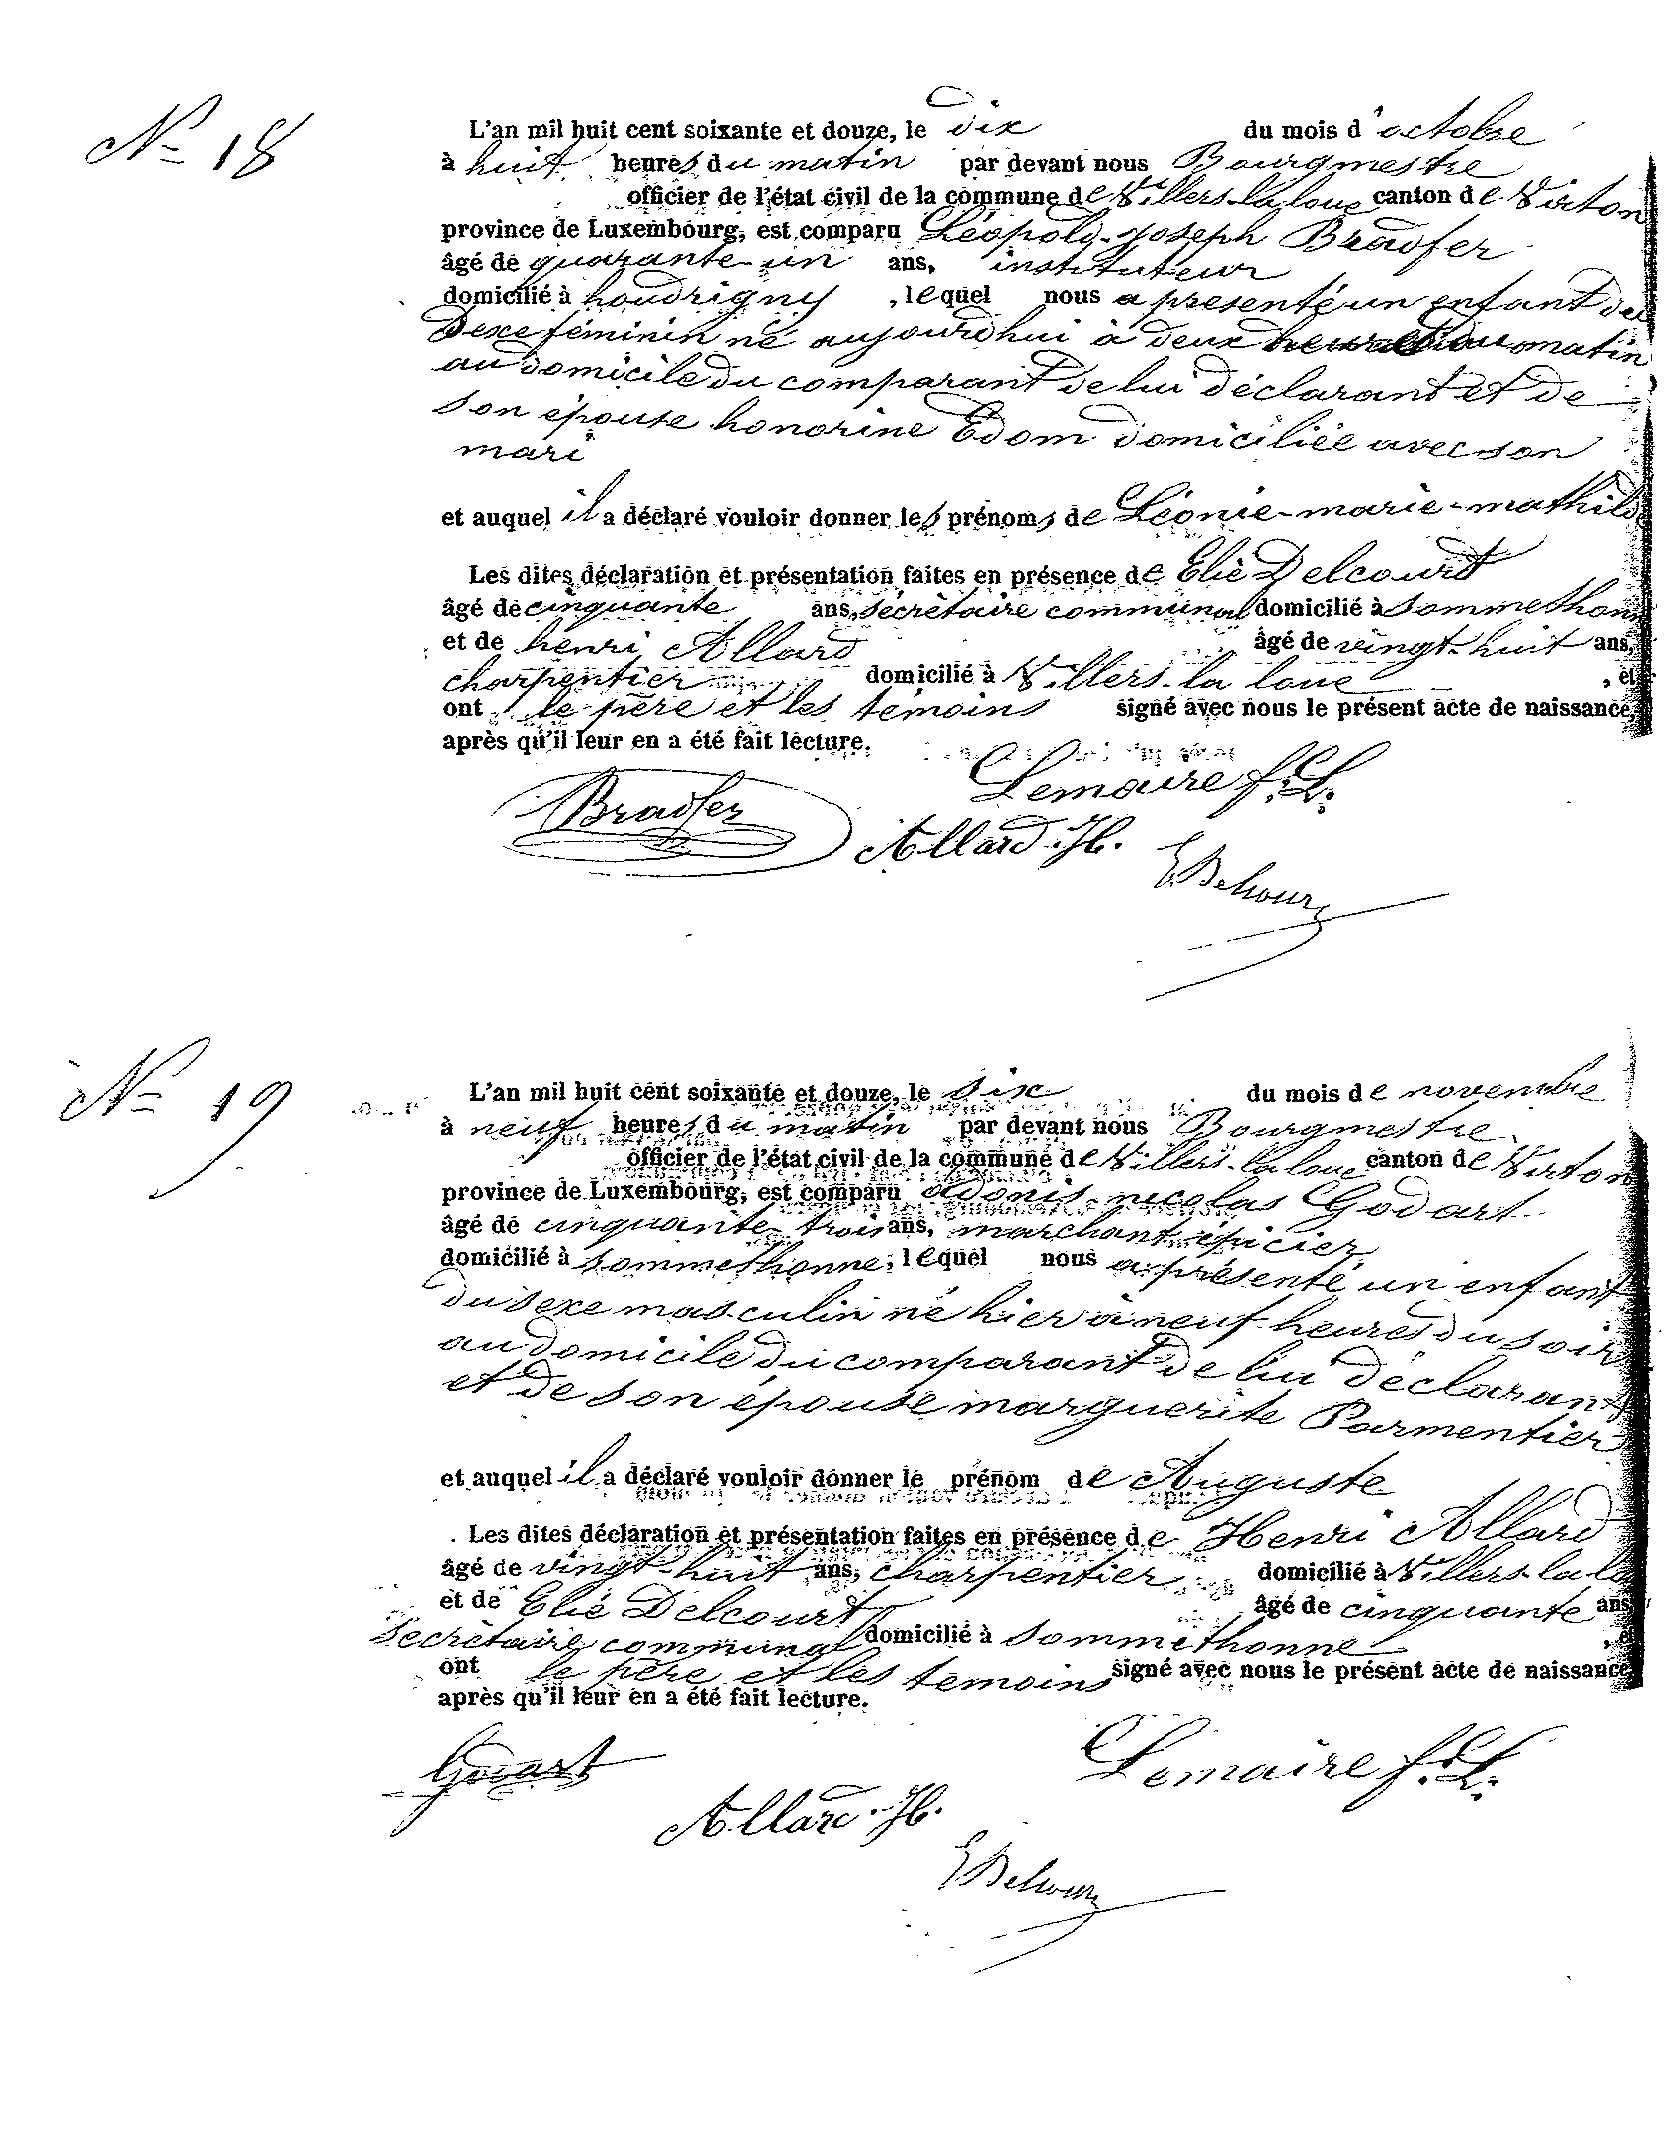 N° 18
L'an mil huit cent soixante et douze, le dix du mois d'octobre
à huit heures du matin par devant nous Bourgmestre
officier de l'état civil de la commune de Villers-la loue canton de Virton
province de Luxembourg, est comparu Léopold-joseph Bradfer
âgé de quarante-un ans, instituteur
domicilié à houdrigny, lequel nous a présenté un enfant du
sexe féminin né aujourd'hui à deux heures du matin
au domicile du comparant de lui déclarant et de
son épouse honorine Edom domiciliée avec son
mari
et auquel il a déclaré vouloir donner les prénoms de Léonie-marie-mathilde
Les dites déclaration et présentation faites en présence de Elie Delcourt
âgé de cinquante ans, sécrètaire communal domicilié à Sommethonne
et de henri Allard âgé de vingt-huit ans,
charpentier domicilié à Villers-la loue, et
ont le père et les temoins signé avec nous le présent acte de naissance,
après qu'il leur en a été fait lecture.
Bradfer Lemaire f.L.
Allard H. EDelcour
N° 19
L'an mil huit cent soixante et douze, le six du mois de novembre
à neuf heures du matin par devant nous Bourgmestre
officier de l'état civil de la commune de Villers-la loue canton de Virton
province de Luxembourg, est comparu adonis-nicolas Godart
âgé de cinquante-trois ans, marchant épicier
domicilié à Sommethonne, lequel nous a présenté un enfant
du sexe masculin né hier à neuf heures du soir
au domicile du comparant de lui déclarant
et de son épouse marguerite Parmentier
et auquel il a déclaré vouloir donner le prénom de Auguste
Les dites déclaration et présentation faites en présence de Henri Allard
âgé de vingt-huit ans, charpentier domicilié à Villers-la lo
et de Elie Delcourt âgé de cinquante ans
secrètaire communal domicilié à Sommethonne, et
ont le père et les temoins signé avec nous le présent acte de naissance
après qu'il leur en a été fait lecture.
Godart Lemaire f.L.
Allard H.
EDelcour